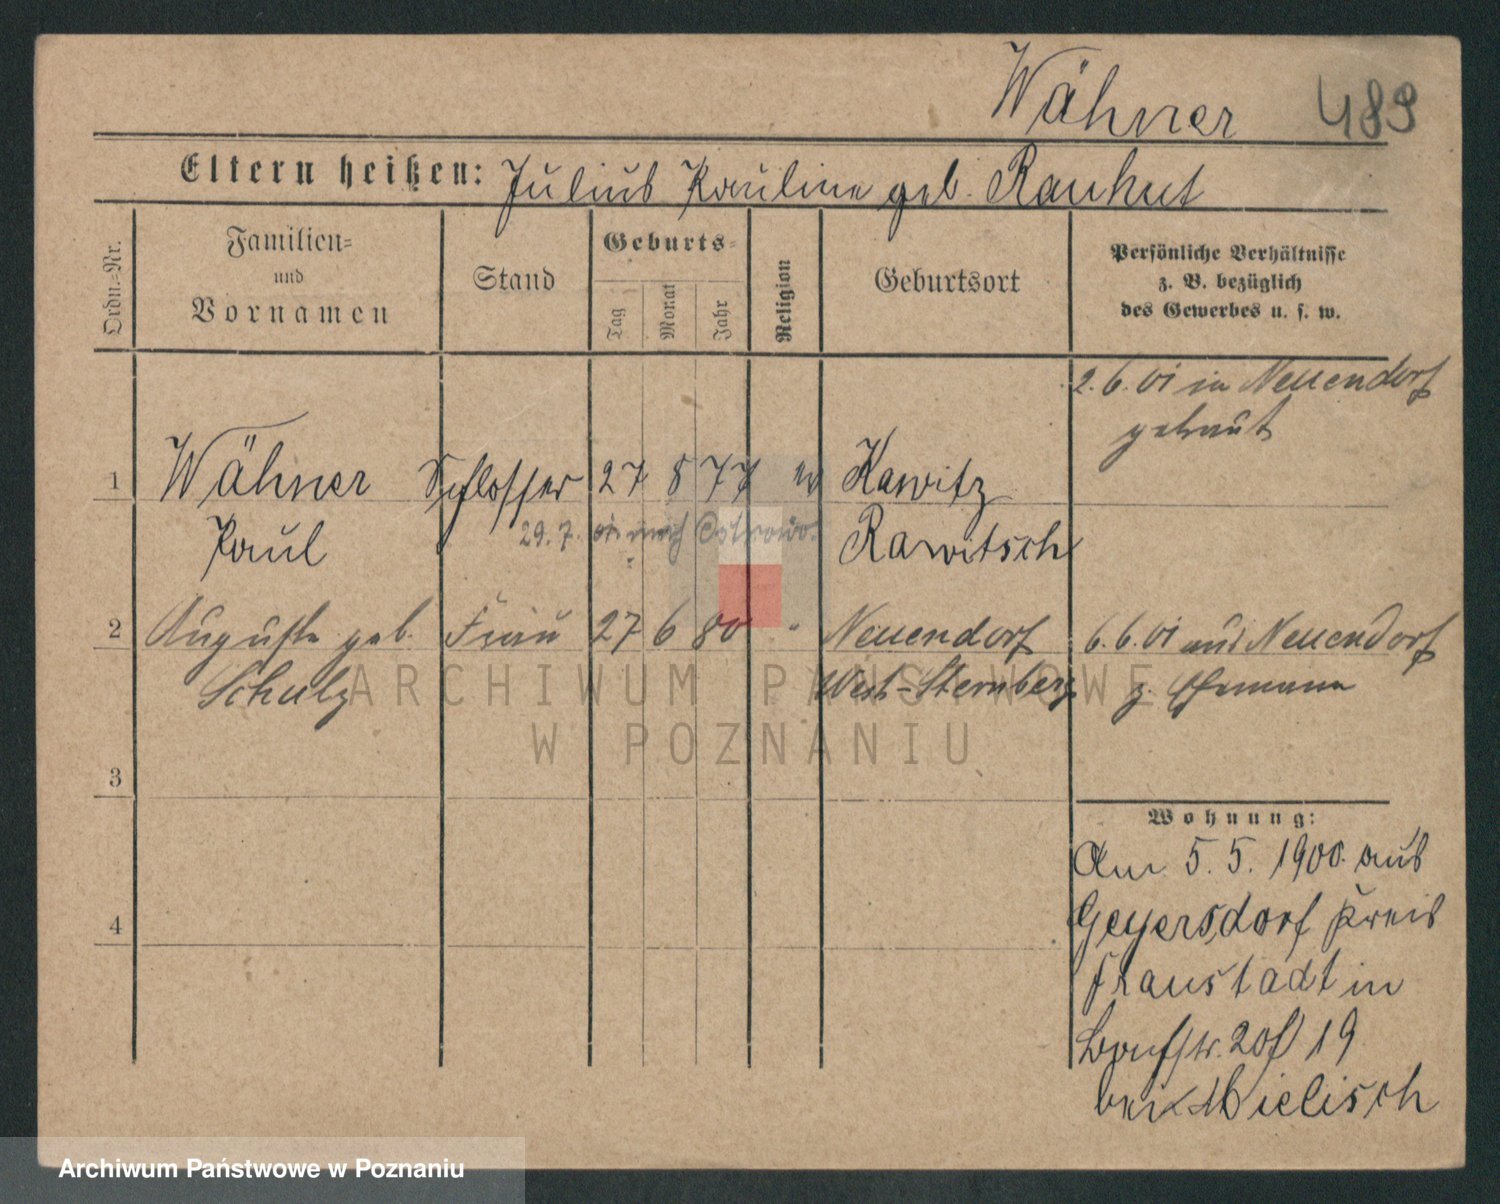 Wähner 489
Eltern heißen: Julius Pauline geb. Rauhut
Ordn.-Nr.
Familien-
und
Vornamen
Stand
Geburts-
Tag
Monat
Jahr
Religion
Geburtsort
Persönliche Verhältnisse
z. B. bezüglich
des Gewerbes u. s. w.
2.6.01 in Neuendorf
getraut
1 Wähner Schlosser 27 8 77 ev Kawitz
Paul 29.7. 01 nach Ostrowo. Rawitsch
2 Auguste geb. Frau 27 6 80 " Neuendorf 6.6.01 aus Neuendorf
Schulz West-Sternberg z. Ehemann
3
4
Wohnung:
Am 5.5. 1900. aus
Geyersdorf Kreis
Fraustadt in
19
bei Mielisch
ARCHIWUM PAŃSTWOWE
W POZNANIU
Archiwum Państwowe w Poznaniu